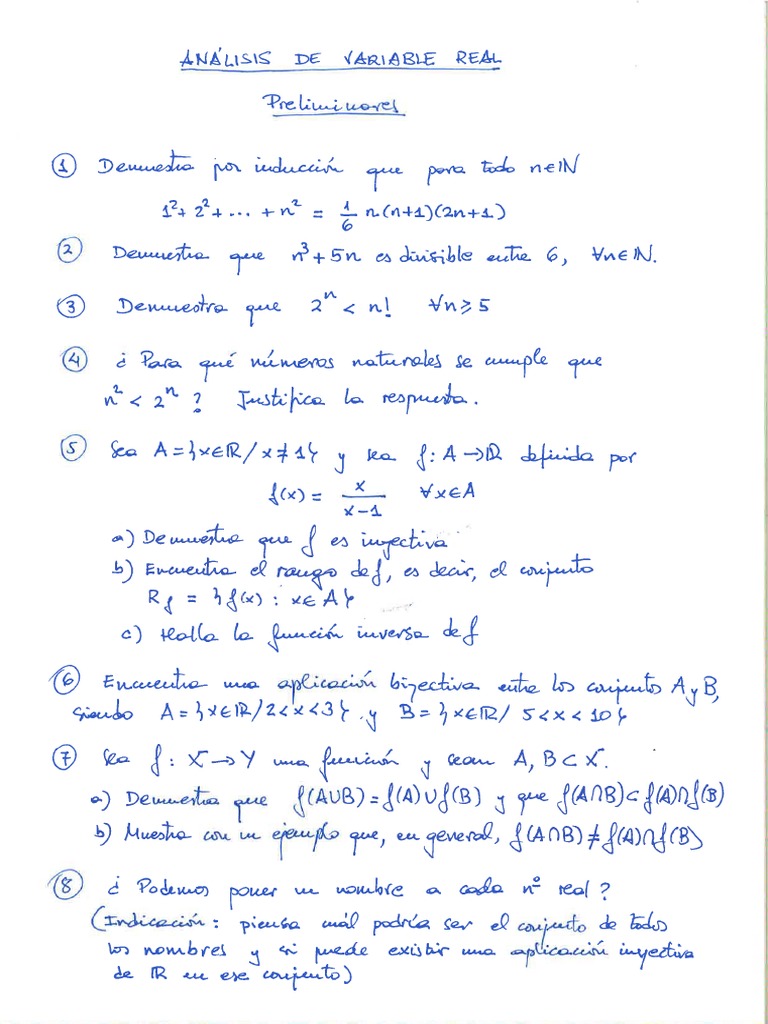 ANÁLISIS DE VARIABLE REAL
Preliminares
① Demuestra por inducción que para todo n∈ℕ
1²+2²+...+n² = 1/6 n(n+1)(2n+1)
② Demuestra que n³+5n es divisible entre 6, ∀n∈ℕ.
③ Demuestra que 2ⁿ < n! ∀n≥5
④ ¿Para qué números naturales se cumple que
n² < 2ⁿ? Justifica la respuesta.
⑤ Sea A={x∈ℝ/x≠1} y sea f: A→ℝ definida por
f(x) = x/(x-1) ∀x∈A
a) Demuestra que f es inyectiva
b) Encuentra el rango de f, es decir, el conjunto
R_f = {f(x) : x∈A}
c) Halla la función inversa de f
⑥ Encuentra una aplicación biyectiva entre los conjuntos A y B,
siendo A={x∈ℝ/2<x<3} y B={x∈ℝ/ 5<x<10}
⑦ Sea f: X→Y una función y sean A, B⊂X.
a) Demuestra que f(A∪B)=f(A)∪f(B) y que f(A∩B)⊂f(A)∩f(B)
b) Muestra con un ejemplo que, en general, f(A∩B)≠f(A)∩f(B)
⑧ ¿Podemos poner un nombre a cada nº real?
(Indicación: piensa cuál podría ser el conjunto de todos
los nombres y si puede existir una aplicación inyectiva
de ℝ en ese conjunto)